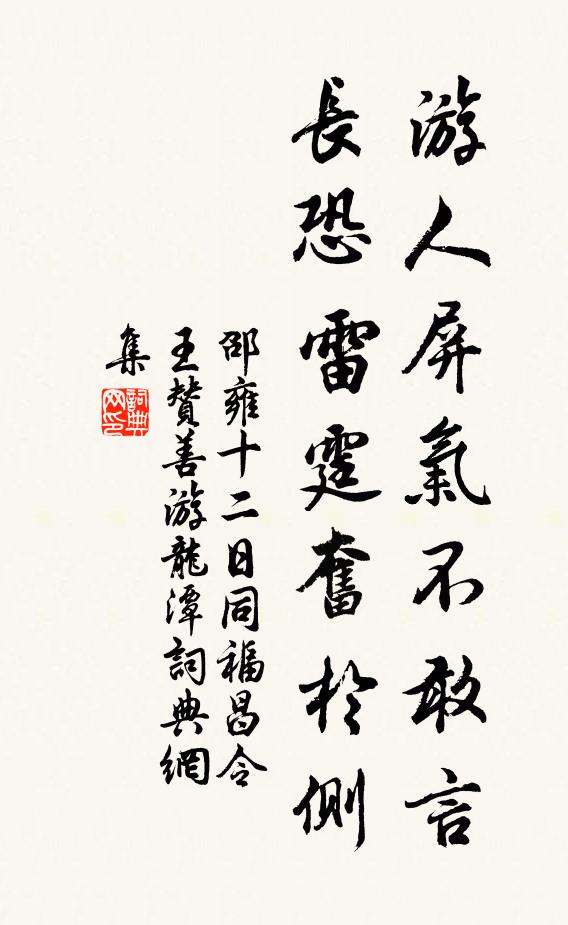 游人屏氣不敢言
長恐雷霆奮於側
邵雍十二日同福昌令
王贊善游龍潭詞典網
集
詞典
网印